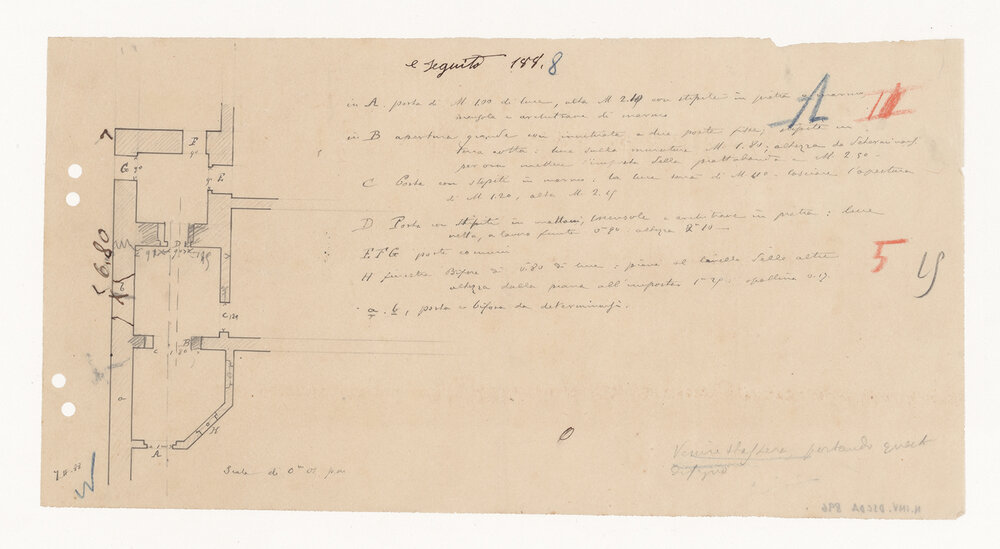 eseguito 188.8
A 11
in A. porta di M 1.00 di luce, alta M 2.40 con stipiti in pietra e marmo
mensole e architrave di marmo
in B apertura grande con invetriata a due poste fisse; stipite in
terra cotta: luce sulla muratura M. 1.80; altezza da determinarsi
per ora mettere l'imposta della piattabanda a M 2.50.
C Porta con stipiti in marmo: la luce sarà di M lasciare l'apertura
di M 1.20, alta M. 2.45
D Porta con stipiti in mattoni, mensole e architrave in pietra: luce
netta, a lavoro finito 0.80 altezza 2.10
E F G porte comuni
H finestra Bifora di 0.80 di luce: piana al livello delle altre
altezza dalla piana all'imposta
a . b, porta e bifora da determinarsi.
5 15
F
G 90
E
D
6.80
C 1,20
C 1.80 B
a
H
A
Scala di 0m 01 per
Venire stassera portando questo
disegno
N. INV. DSCDA 896